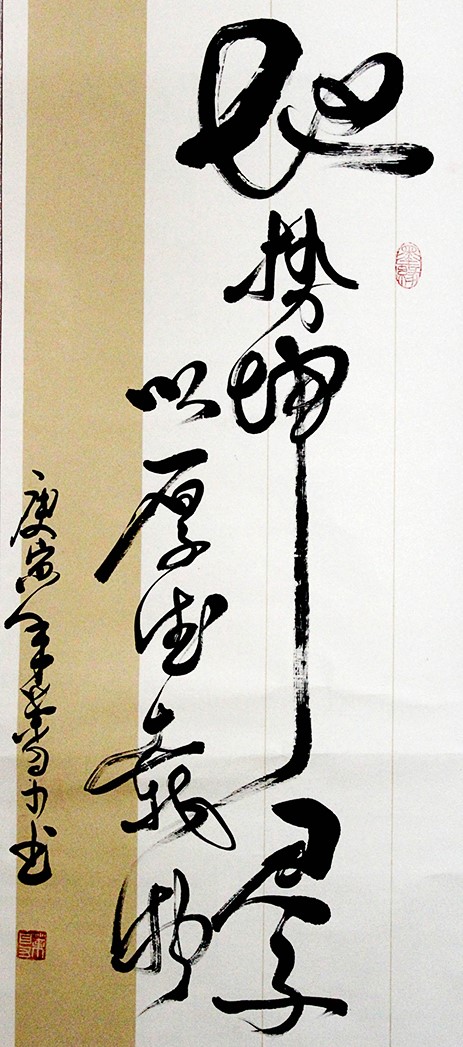 地势坤君子
以厚德载物
庚寅年 书